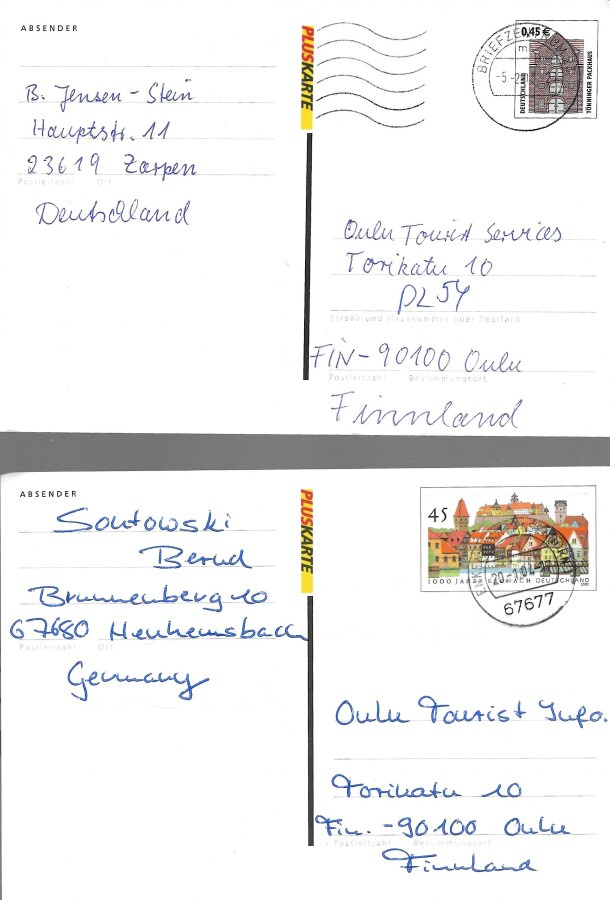 ABSENDER
B. Jensen-Stein
Hauptstr. 11
23619 Zarpen
Postleitzahl Ort
Deutschland
PLUSKARTE
BRIEFZENTRUM
0,45 €
DEUTSCHLAND
TÖNNINGER PACKHAUS
Oulu Tourist Services
Torikatu 10
PL 54
Straße und Hausnummer oder Postfach
FIN-90100 Oulu
Postleitzahl Bestimmungsort
Finnland
ABSENDER
Sontowski
Bernd
Brunnenberg 10
67680 Neuhemsbach
Postleitzahl Ort
Germany
PLUSKARTE
45
1000 JAHRE KRONACH DEUTSCHLAND
67677
Oulu Tourist Info.
Torikatu 10
Fin.-90100 Oulu
Postleitzahl Bestimmungsort
Finnland